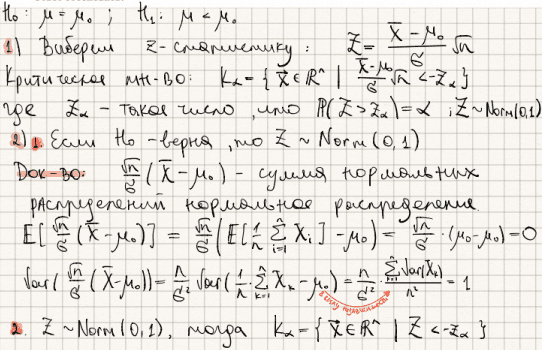 H₀: μ = μ₀ ; H₁: μ < μ₀
1) Выберем z-статистику: Z = (X̄ - μ₀)/σ √n
Критическое мн-во: K_α = { X⃗ ∈ ℝⁿ | (X̄ - μ₀)/σ √n < -z_α }
где z_α - такое число, что P(Z > z_α) = α ; Z ~ Norm(0,1)
2) 1. Если H₀ - верна, то Z ~ Norm(0,1)
Док-во: √n/σ (X̄ - μ₀) - сумма нормальных
распределений нормальное распределение.
E[√n/σ (X̄ - μ₀)] = √n/σ (E[1/n ∑_{i=1}^{n} X_i] - μ₀) = √n/σ · (μ₀ - μ₀) = 0
Var(√n/σ (X̄ - μ₀)) = n/σ² Var(1/n · ∑_{k=1}^{n} X_k - μ₀) = n/σ² · (∑_{k=1}^{n} Var(X_k))/n² = 1
в силу независимости
2. Z ~ Norm(0,1), тогда K_α = { X⃗ ∈ ℝⁿ | Z < -z_α }